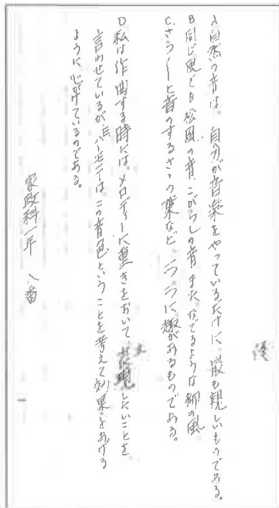 優
A 自然の音は、自分が音楽をやっているだけに最も親しいものである。
B 同じ風でも松風の音、こがらしの音、またなでるような柳の風
C さらさらと音のするささの葉など 一つ一つに趣があるものである。
D 私は作曲する時にはメロディーに重きをおいて表現したいことを
言わせているが、この音色ということを考えて効果をあげる
ように心がけているのである。
家政科一年 八番